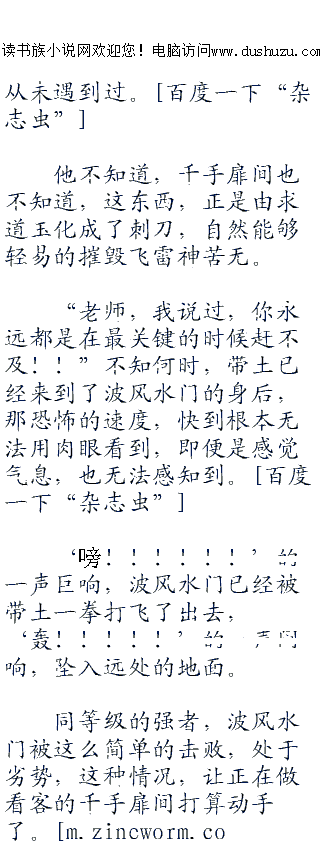 读书族小说网欢迎您！电脑访问www.dushuzu.com
从未遇到过。[百度一下“杂
志虫”]
他不知道，千手扉间也
不知道，这东西，正是由求
道玉化成了刺刀，自然能够
轻易的摧毁飞雷神苦无。
“老师，我说过，你永
远都是在最关键的时候赶不
及！！”不知何时，带土已
经来到了波风水门的身后，
那恐怖的速度，快到根本无
法用肉眼看到，即便是感觉
气息，也无法感知到。[百度
一下“杂志虫”]
‘嗙！！！！！！’的
一声巨响，波风水门已经被
带土一拳打飞了出去，
‘轰！！！！！’的一声闷
响，坠入远处的地面。
同等级的强者，波风水
门被这么简单的击败，处于
劣势，这种情况，让正在做
看客的千手扉间打算动手
了。[m.zincworm.co